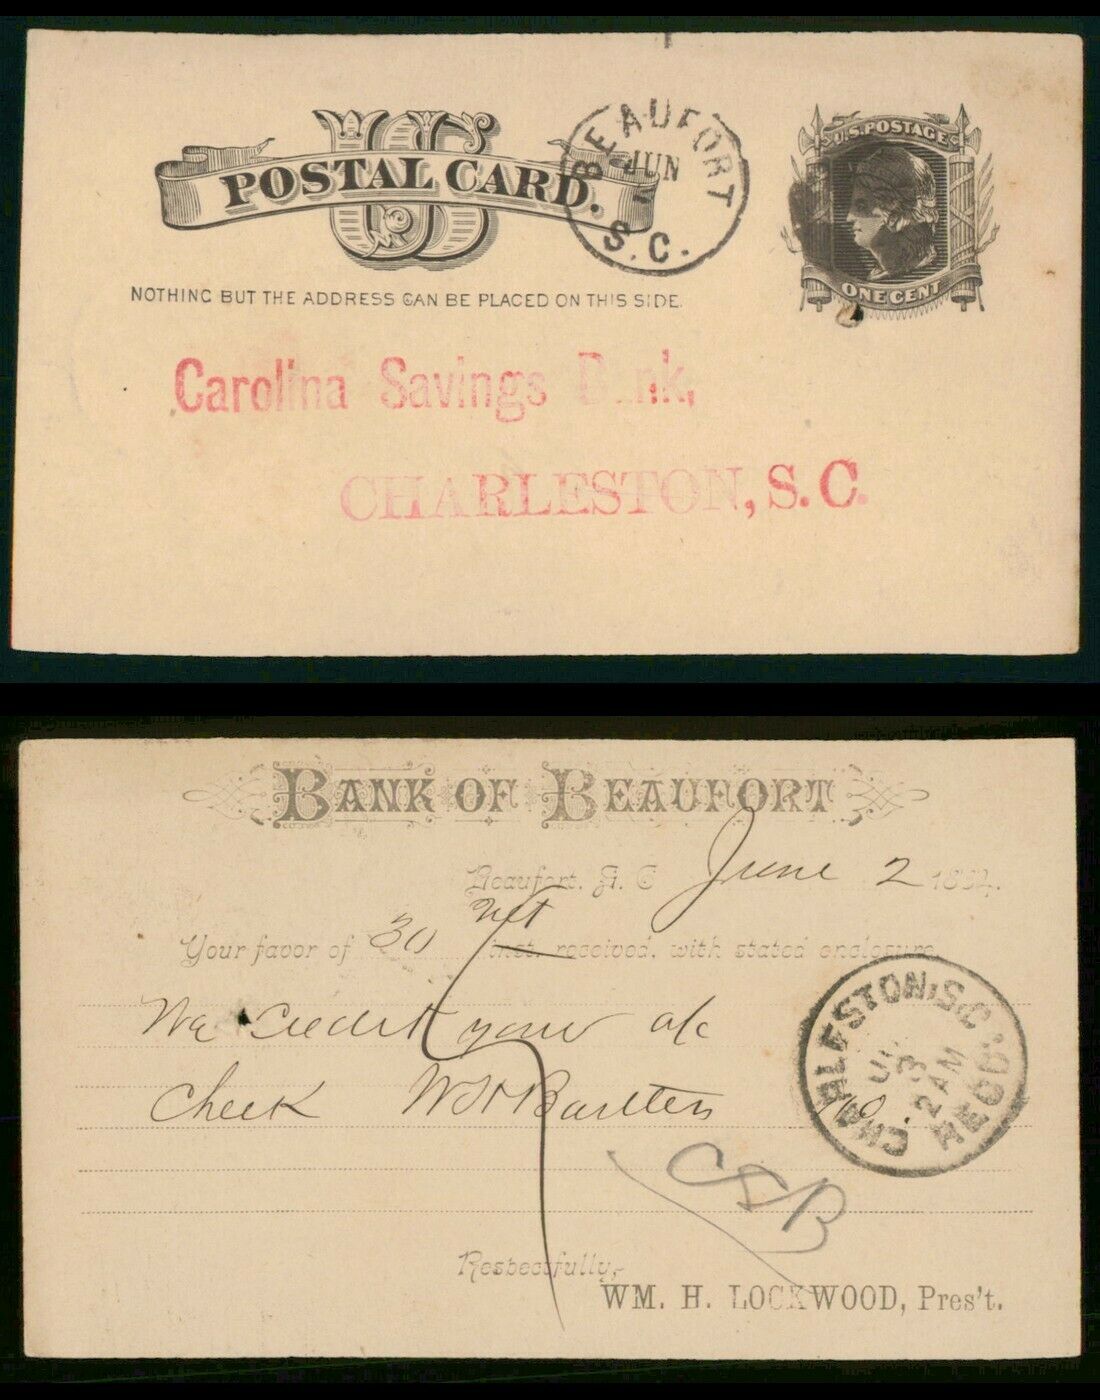 US
POSTAL CARD.
NOTHING BUT THE ADDRESS CAN BE PLACED ON THIS SIDE.
BEAUFORT
JUN
S.C.
U.S. POSTAGE
ONE CENT
Carolina Savings Bank,
CHARLESTON, S.C.
BANK OF BEAUFORT
Beaufort, S. C. June 2 188
Your favor of 30 inst. received, with stated enclosure
We credit your a/c
Check
CHARLESTON, S.C.
3
2 AM
REC'D.
CSB
Respectfully,
WM. H. LOCKWOOD, Pres't.